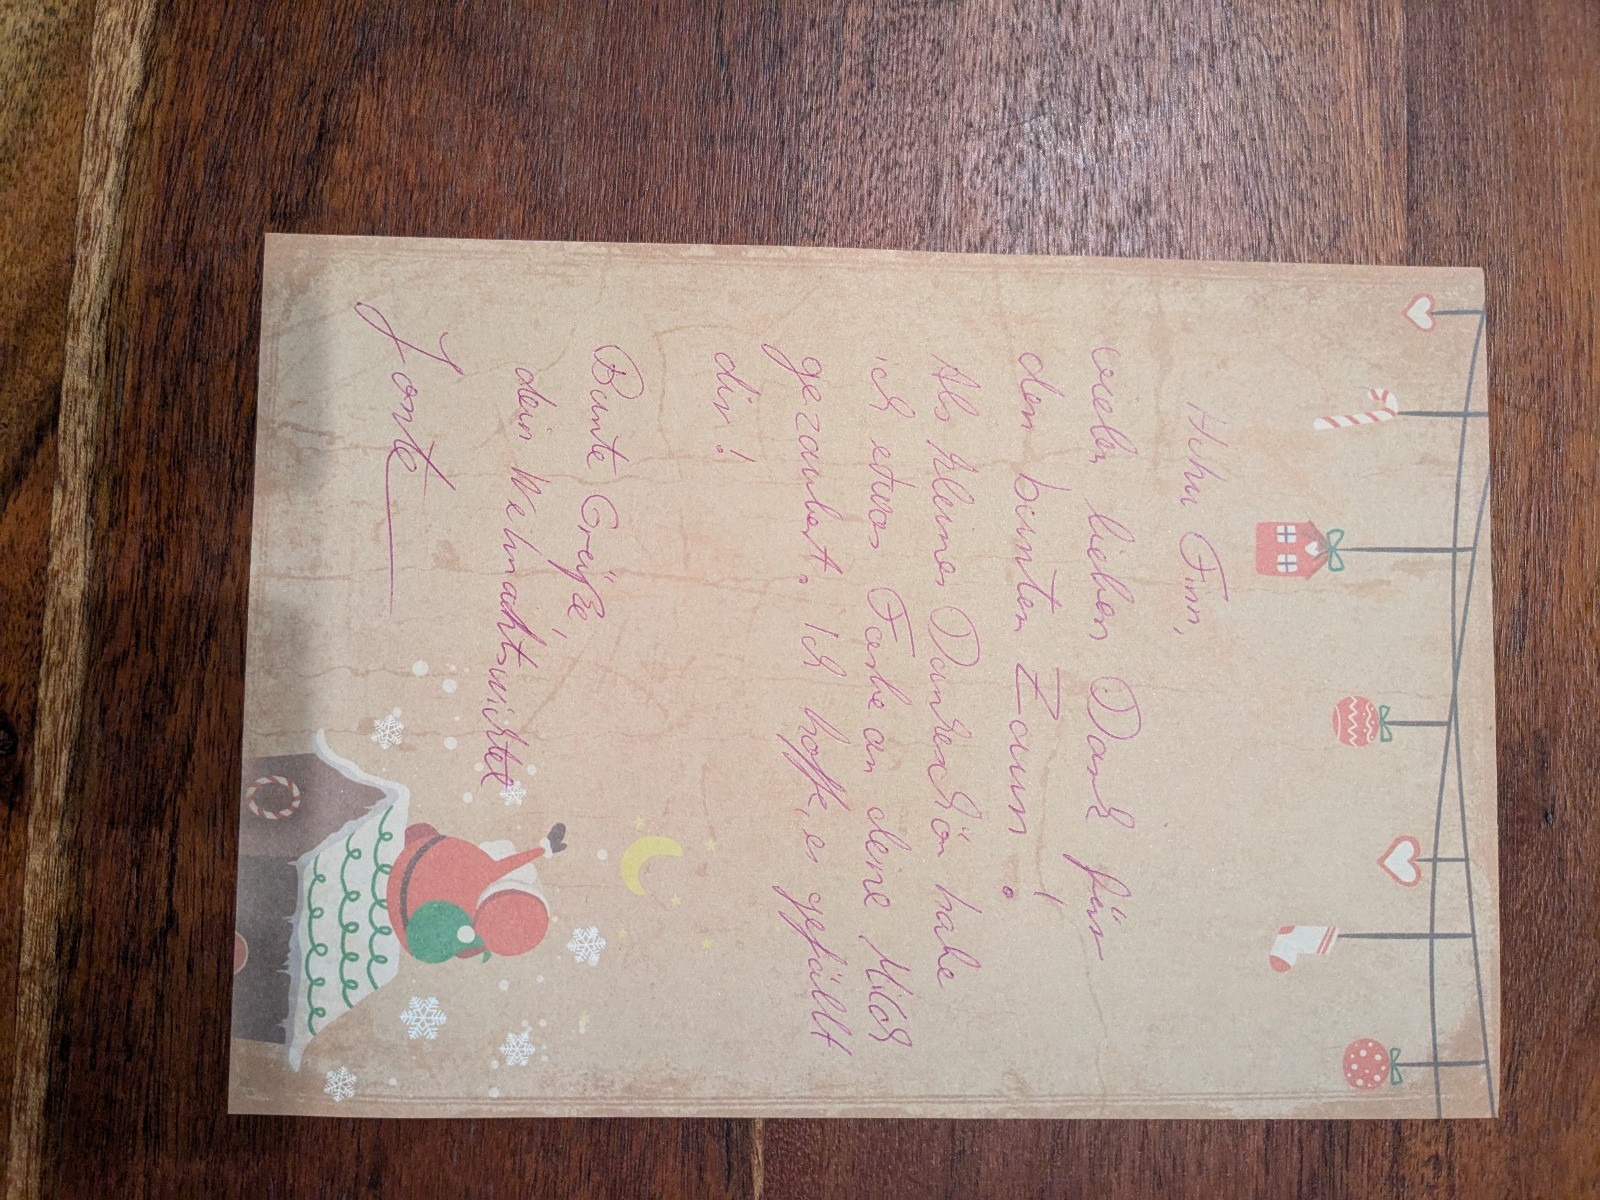 Huhu Finn,
vielen lieben Dank für
den bunten Zaun!
Als kleines Dankeschön habe
ich etwas Farbe an deine Milch
gezaubert. Ich hoffe, es gefällt
dir!
Bunte Grüße,
dein Weihnachtswichtel
Jonte